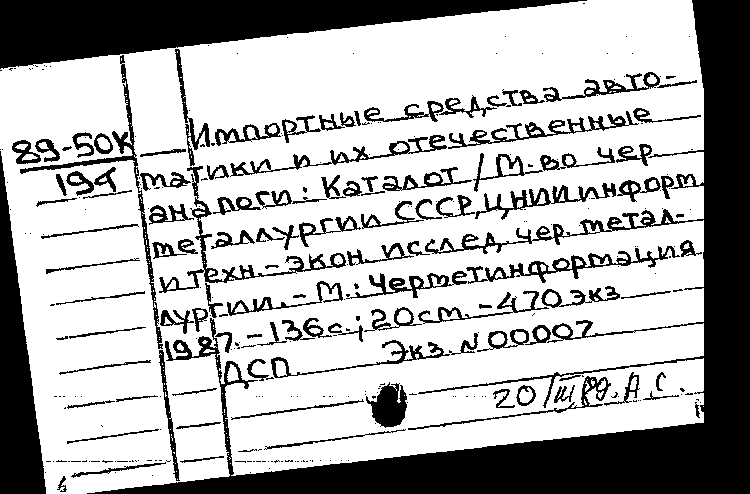 Импортные средства авто-
89-50К
19т
матики и их отечественные
аналоги: Каталог / М-во чер.
металлургии СССР, ЦНИИ информ.
и техн.-экон. исслед. чер. метал-
лургии. - М.: Черметинформация
1987. - 136 с.; 20 см. - 470 экз
ДСП. Экз. N 00007
20/III 89. А.С.